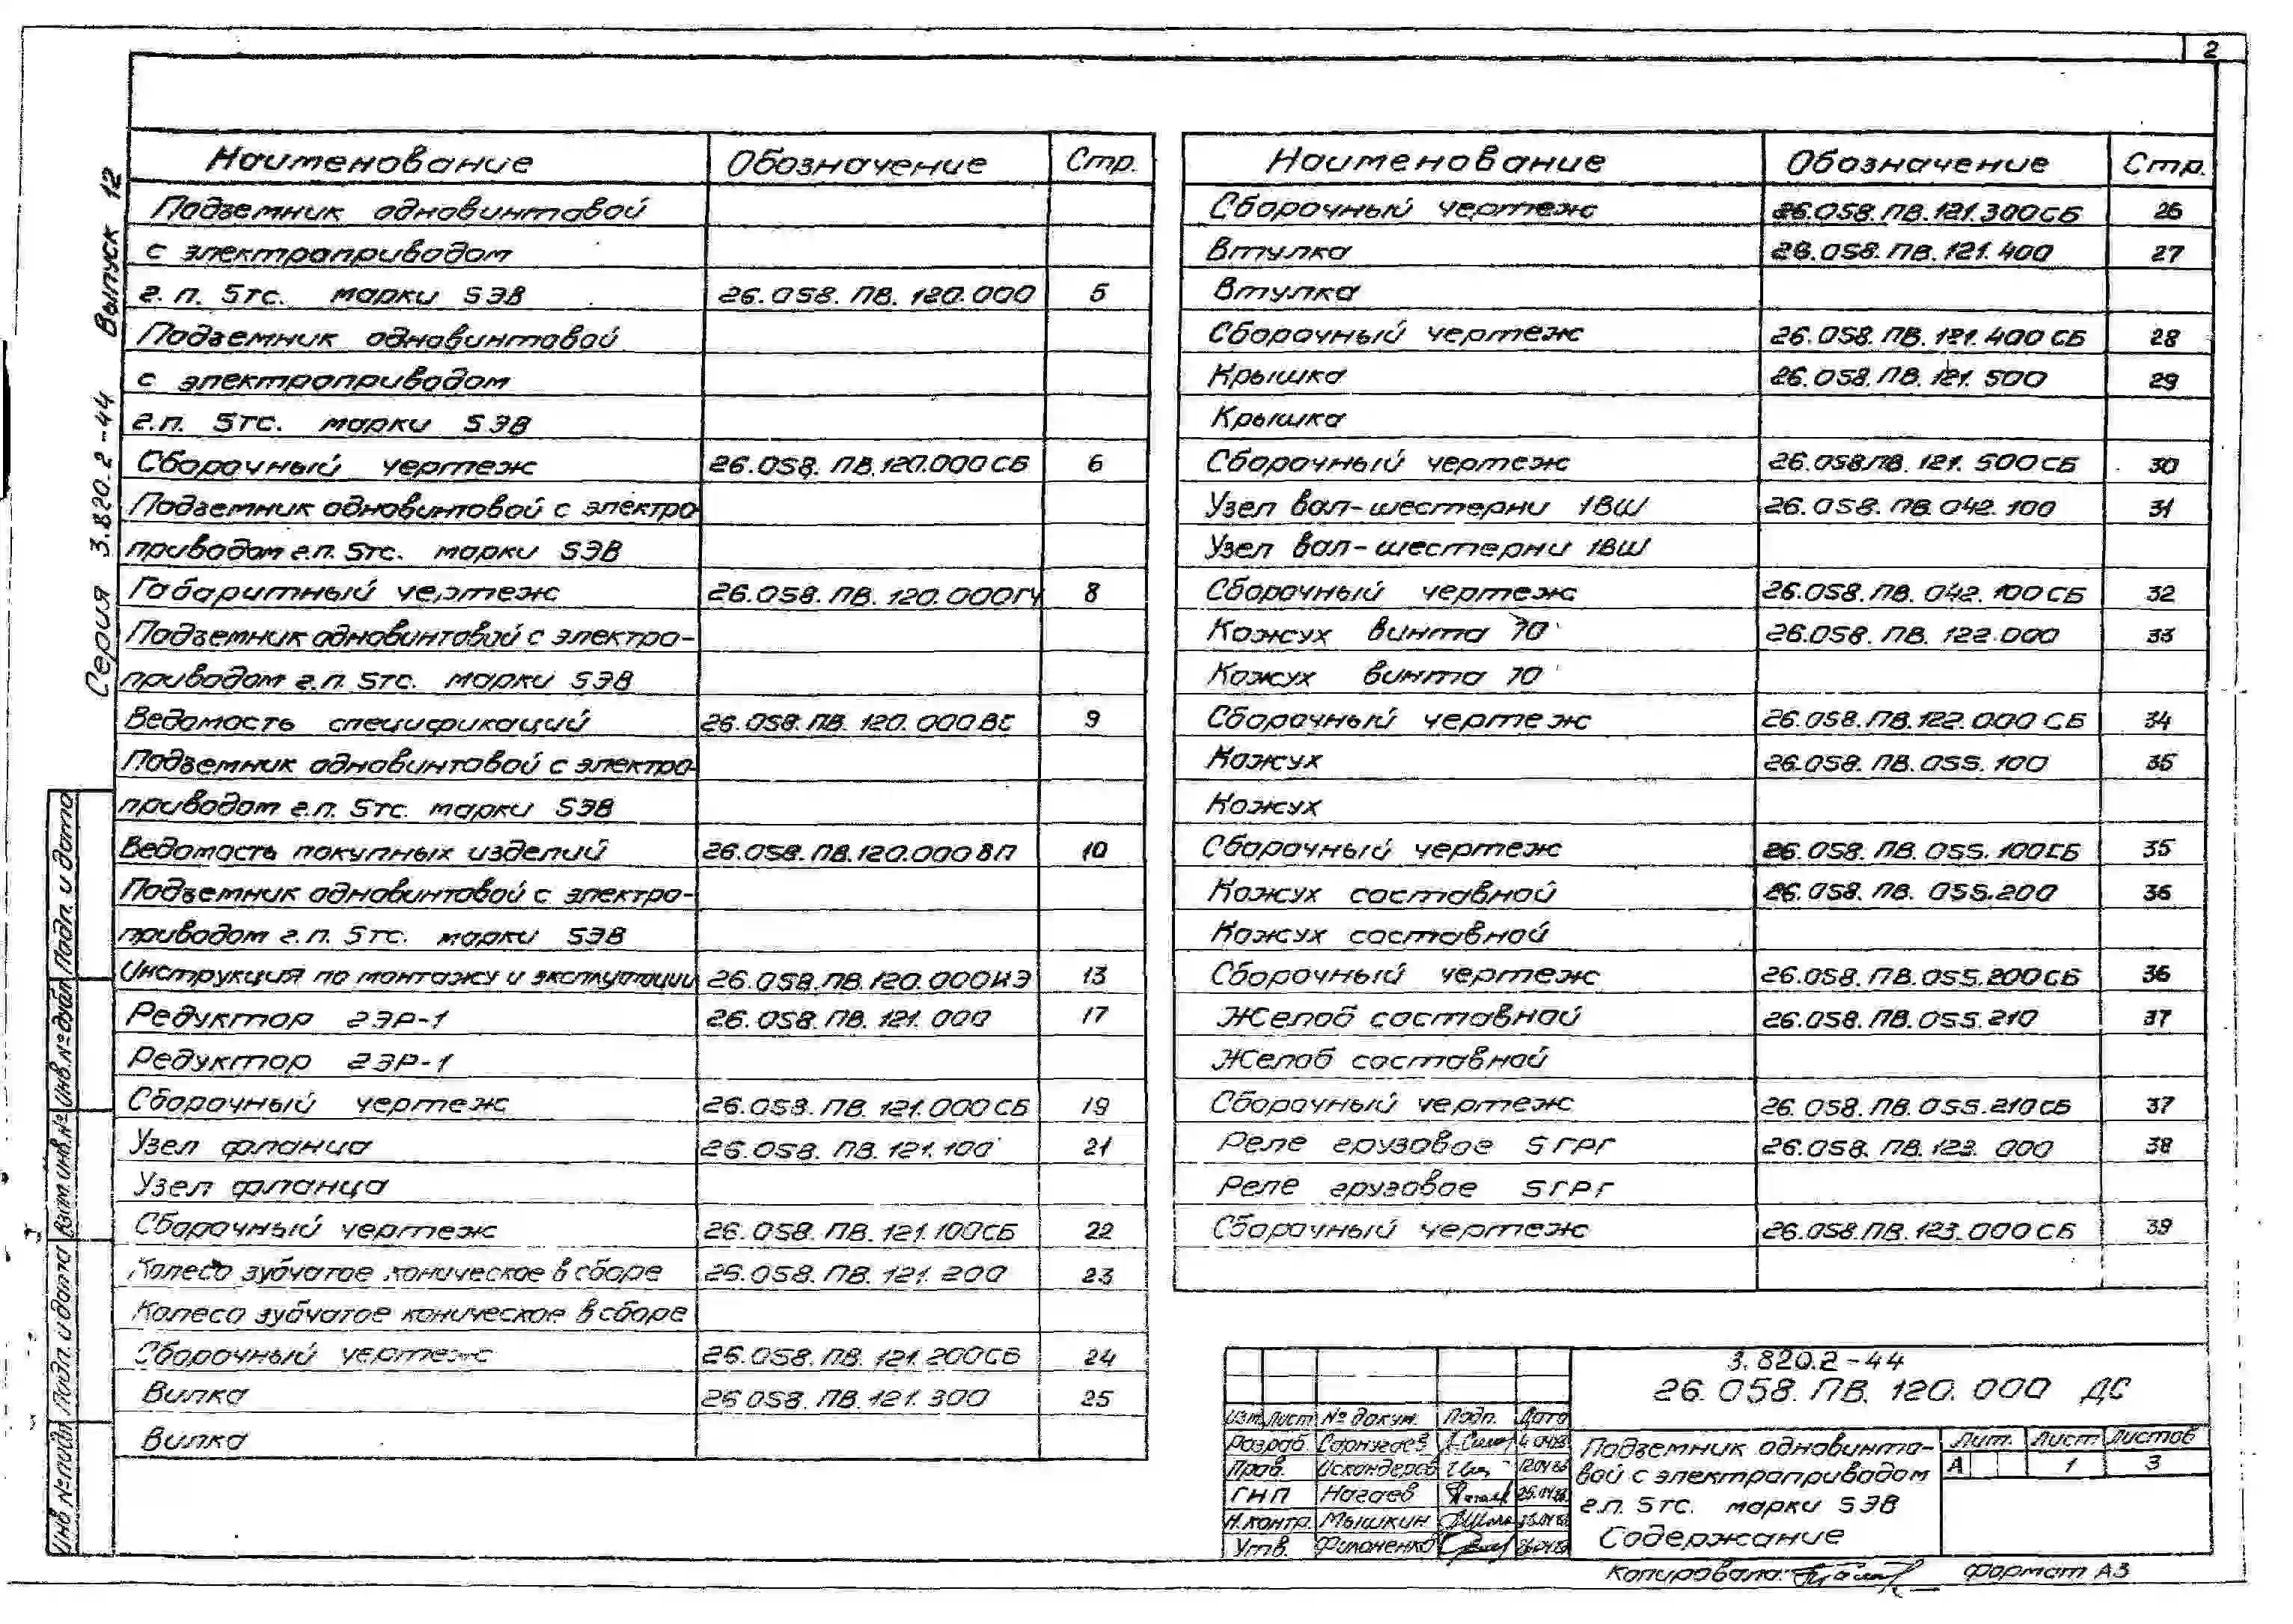 2
Серия 3.820.2-44 Выпуск 12
Наименование Обозначение Стр.
Подъемник одновинтовой
с электроприводом
г.п. 5тс. марки 5ЭВ 26.058.ПВ.120.000 5
Подъемник одновинтовой
с электроприводом
г.п. 5тс. марки 5ЭВ
Сборочный чертеж 26.058.ПВ.120.000СБ 6
Подъемник одновинтовой с электро
приводом г.п. 5тс. марки 5ЭВ
Габаритный чертеж 26.058.ПВ.120.000ГЧ 8
Подъемник одновинтовой с электро-
приводом г.п. 5тс. марки 5ЭВ
Ведомость спецификаций 26.058.ПВ.120.000ВС 9
Подъемник одновинтовой с электро-
приводом г.п. 5тс. марки 5ЭВ
Ведомость покупных изделий 26.058.ПВ.120.000ВП 10
Подъемник одновинтовой с электро-
приводом г.п. 5тс. марки 5ЭВ
Инструкция по монтажу и эксплуатации 26.058.ПВ.120.000ИЭ 13
Редуктор 2ЭР-1 26.058.ПВ.121.000 17
Редуктор 2ЭР-1
Сборочный чертеж 26.058.ПВ.121.000СБ 19
Узел фланца 26.058.ПВ.121.100 21
Узел фланца
Сборочный чертеж 26.058.ПВ.121.100СБ 22
Колесо зубчатое коническое в сборе 26.058.ПВ.121.200 23
Колесо зубчатое коническое в сборе
Сборочный чертеж 26.058.ПВ.121.200СБ 24
Вилка 26.058.ПВ.121.300 25
Вилка
Наименование Обозначение Стр.
Сборочный чертеж 26.058.ПВ.121.300СБ 26
Втулка 26.058.ПВ.121.400 27
Втулка
Сборочный чертеж 26.058.ПВ.121.400СБ 28
Крышка 26.058.ПВ.121.500 29
Крышка
Сборочный чертеж 26.058.ПВ.121.500СБ 30
Узел вал-шестерни 1ВШ 26.058.ПВ.042.100 31
Узел вал-шестерни 1ВШ
Сборочный чертеж 26.058.ПВ.042.100СБ 32
Кожух винта 70 26.058.ПВ.122.000 33
Кожух винта 70
Сборочный чертеж 26.058.ПВ.122.000СБ 34
Кожух 26.058.ПВ.055.100 35
Кожух
Сборочный чертеж 26.058.ПВ.055.100СБ 35
Кожух составной 26.058.ПВ.055.200 36
Кожух составной
Сборочный чертеж 26.058.ПВ.055.200СБ 36
Желоб составной 26.058.ПВ.055.210 37
Желоб составной
Сборочный чертеж 26.058.ПВ.055.210СБ 37
Реле грузовое 5ГРГ 26.058.ПВ.123.000 38
Реле грузовое 5ГРГ
Сборочный чертеж 26.058.ПВ.123.000СБ 39
Инв.№подл. Подп. и дата Взам.инв.№ Инв.№дубл. Подп. и дата
3.820.2-44
26.058.ПВ.120.000 ДС
Изм. Лист № докум. Подп. Дата
Разраб. Сарнугаев
Пров. Искандеров
ГНП Нагаев
Н.контр. Мышкин
Утв. Филоненко
Подъемник одновинто-
вой с электроприводом
г.п. 5тс. марки 5ЭВ
Содержание
Лит. Лист Листов
А 1 3
Копировала: Формат А3